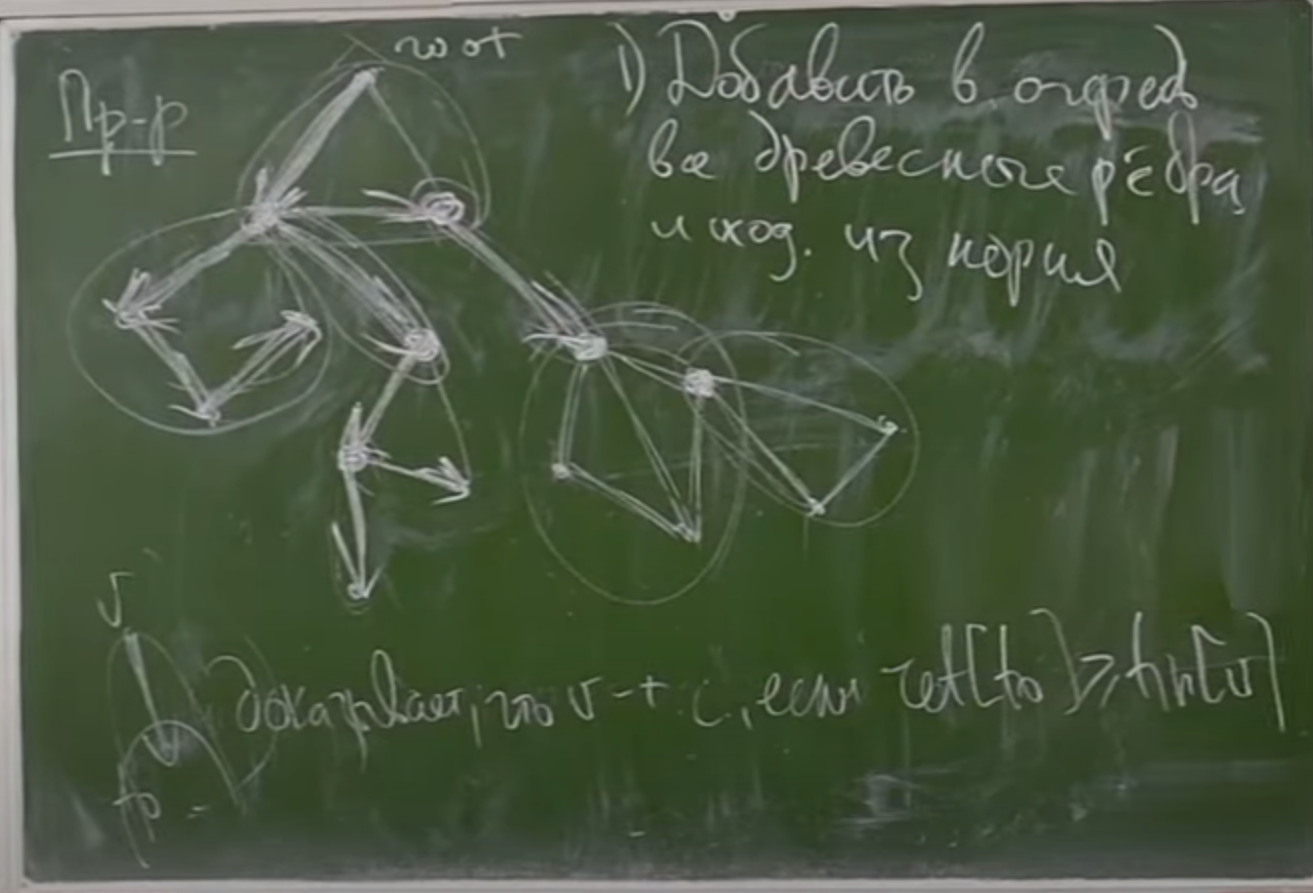 Пр-р
root
1) Добавить в очередь
все древесные рёбра,
исход. из корня
v
to
доказывает, что v - т. с., если ret[to] ≥ tin[v]